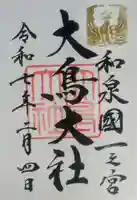 和泉國一之宮
大鳥大社
令和七年二月四日